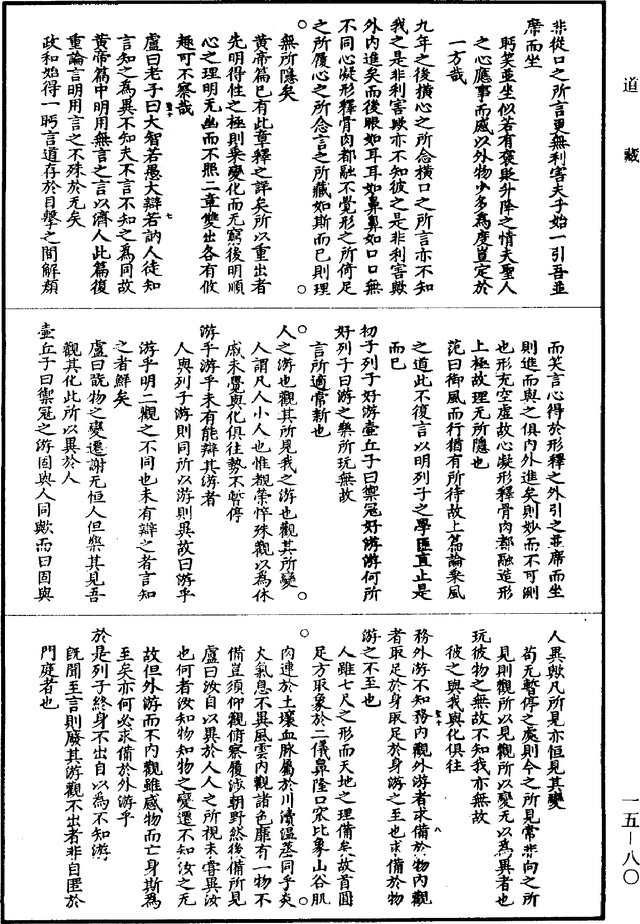 道藏
非從口之所言更無利害夫子始一引吾並
席而坐
眄笑並坐似若有褒貶升降之情夫聖人
之心應事而感以外物少多為度豈定於
一方哉
九年之後橫心之所念橫口之所言亦不知
我之是非利害歟亦不知彼之是非利害歟
外內進矣而後眼如耳耳如鼻鼻如口口無
不同心凝形釋骨肉都融不覺形之所倚足
之所履心之所念言之所藏如斯而已則理
無所隱矣
黃帝篇已有此章釋之詳矣所以重出者
先明得性之極則乘變化而無窮後明順
心之理明无幽而不照二章雙出各有攸
趣可不察哉
盧曰老子曰大智若愚大辯若訥人徒知
言知之為異不知夫不言不知之為同故
黃帝篇中明用無言之言以濟人此篇復
重論言明用言之不殊於无矣
政和始得一眄言道存於目擊之間解頹
而笑言心得於形釋之外引之並席而坐
則進而與之俱內外進矣則妙而不可測
也形充空虛故心凝形釋骨肉都融造形
上極故理无所隱也
范曰御風而行猶有所待故上篇論乘風
之道此不復言以明列子之學匪直止是
而已
初子列子好游壺丘子曰禦寇好游游何所
好列子曰游之樂所玩無故
言所適常新也
人之游也觀其所見我之游也觀其所變
人謂凡人小人也惟覩榮悴殊觀以為休
戚未覺與化俱往勢不暫停
游乎游乎未有能辯其游者
人與列子游則同所以游則異故曰游乎
游乎明二觀之不同也未有辯之者言知
之者鮮矣
盧曰翫物之變遷謝无恒人但樂其見吾
觀其化此所以異於人
壺丘子曰禦寇之游固與人同歟而曰固與
人異歟凡所見亦恒見其變
苟无暫停之處則今之所見常非向之所
見則觀所以見觀所以變无以為異者也
玩彼物之無故不知我亦無故
彼之與我與化俱往
務外游不知務內觀外游者求備於物內觀
者取足於身取足於身游之至也求備於物
游之不至也
人雖七尺之形而天地之理備矣故首圓
足方取象於二儀鼻隆口窊比象山谷肌
肉連於土壤血脉屬於川瀆溫蒸同乎炎
火氣息不異風雲內觀諸色靡有一物不
備豈須仰觀俯察履涉朝野然後備所見
盧曰汝自以異於人人之所視未嘗異汝
也何者汝知物知物之變遷不知汝之无
故但外游而不內觀雖感物而亡身斯為
至矣亦何必求備於外游乎
於是列子終身不出自以為不知游
既聞至言則廢其游觀不出者非自匿於
門庭者也
一五－八〇